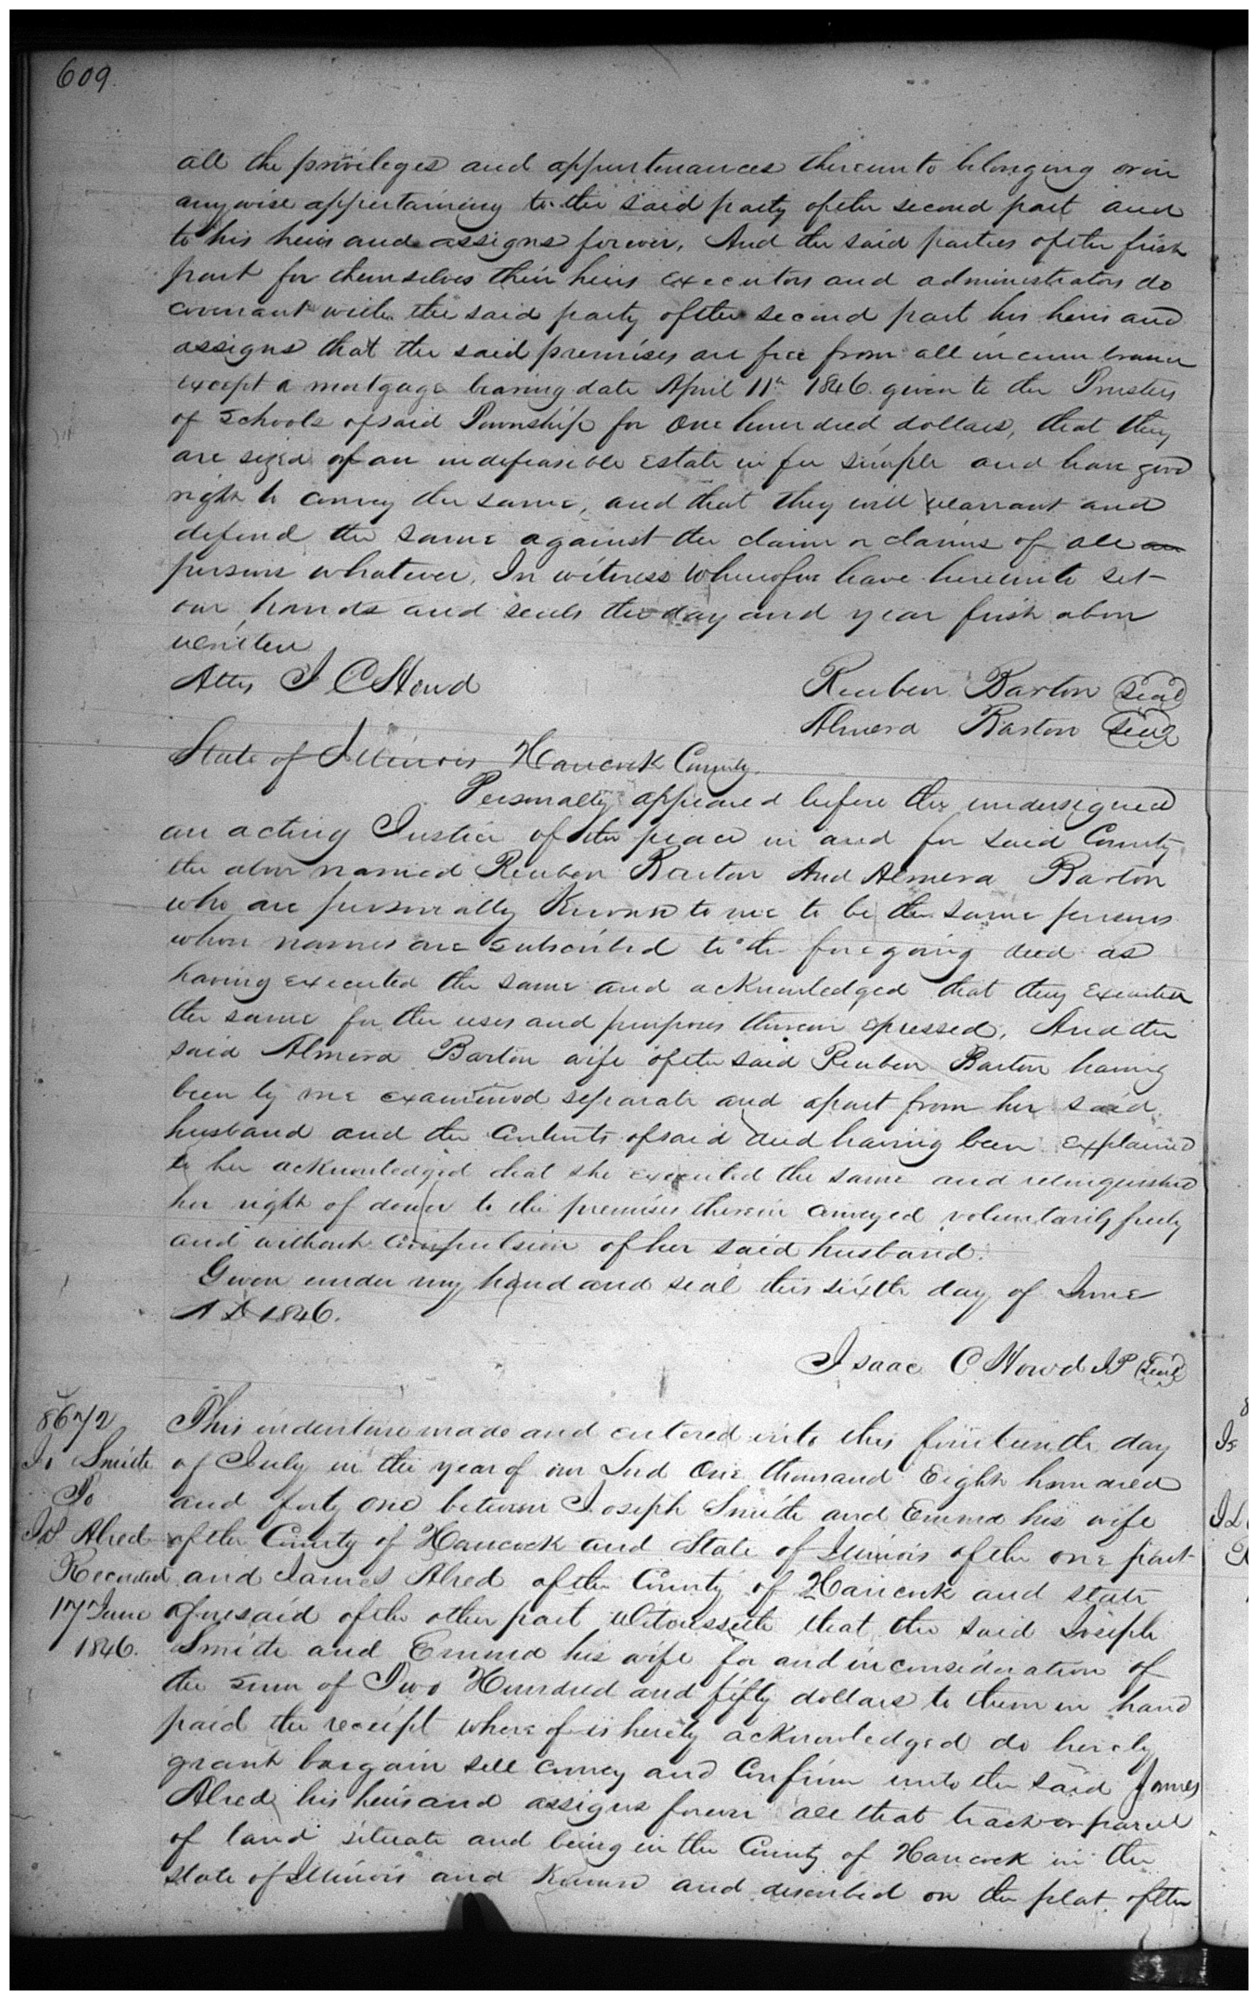 609.
all the privileges and appurtenances thereunto belonging or in
anywise appertaining to the said party of the second part and
to his heirs and assigns forever. And the said parties of the first
part for themselves their heirs executors and administrators do
covenant with the said party of the second part his heirs and
assigns that the said premises are free from all incumbrance
except a mortgage bearing date April 11th 1846 given to the Trustees
of Schools of said Township for One hundred dollars, that they
are sized of an indefeasible estate in fee simple and have good
right to convey the same, and that they will warrant and
defend the same against the claim or claims of all an
persons whatever. In witness Whereof we have hereunto set
our hands and seals the day and year first above
written
Attest I C Howd
Reuben Barton Seal
Almera Barton Seal
State of Illinois Hancock County
Personally appeared before the undersigned
an acting Justice of the peace in and for said County
the above named Reuben Barton And Almera Barton
who are personally Known to me to be the same persons
whose names are subscribed to the foregoing deed as
having executed the same and acknowledged that they Executed
the same for the uses and purposes therein expressed. And the
said Almera Barton wife of the said Reuben Barton having
been by me examined separate and apart from her said
husband and the Contents of said deed having been explained
to her acknowledged that she executed the same and relinquished
her right of dower to the premises therein conveyed voluntarily freely
and without compulsion of her said husband.
Given under my hand and seal this sixth day of June
A D 1846.
Isaac C Howd JP Seal
8672
Jo Smith
To
Js Alred
Recorded
17 June
1846.
This indenture made and entered into this fourteenth day
of July in the year of our Lord One thousand Eight hundred
and forty one between Joseph Smith and Emma his wife
of the County of Hancock and State of Illinois of the one part
and James Alred of the County of Hancock and state
aforesaid of the other part Witnesseth that the said Joseph
Smith and Emma his wife for and in consideration of
the sum of Two Hundred and fifty dollars to them in hand
paid the receipt whereof is hereby acknowledged do hereby
grant bargain sell convey and Confirm unto the said James
Alred his heirs and assigns forever all that tract or parcel
of land situate and being in the County of Hancock in the
State of Illinois and Known and described on the plat of the